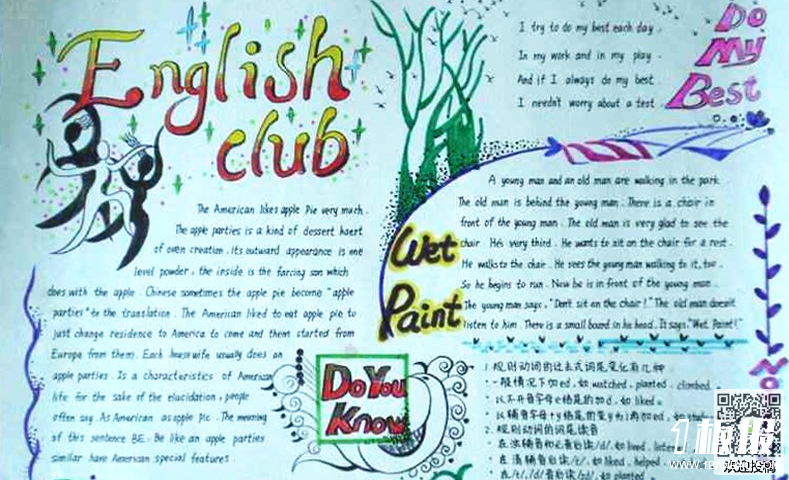 English
club
The American likes apple Pie very much.
The apple parties is a kind of dessert haert
of oven creation. its outward appearance is one
level powder, the inside is the farcing son which
does with the apple. Chinese sometimes the apple pie become "apple
parties" to the translation. The American liked to eat apple pie to
just change residence to America to come and them started from
Europe from them. Each housewife usually does an
apple parties. Is a characteristics of American
life for the sake of the elucidation, people
often say. As American as apple pic. The meaning
of this sentence BE: Be like an apple parties
similar have American special features.
Do My Best
I try to do my best each day.
In my work and in my play.
And if I always do my best.
I needn't worry about a test.
Wet
Paint
A young man and an old man are walking in the park.
The old man is behind the young man. There is a chair in
front of the young man. The old man is very glad to see the
chair. He's very third. He wants to sit on the chair for a rest.
He walks to the chair. He sees the young man walking to it, too.
So he begins to run. Now be is in front of the young man.
The young man says, "Don't sit on the chair!" The old man doesn't
listen to him. There is a small board in his head. It says, "Wet Paint!"
Do You
Know
1. 规则动词的过去式词尾变化有几种
一般情况下加ed, 如 watched, planted, climbed.
以不发音字母e结尾的加d, 如 liked.
以辅音字母+y结尾的变y为i再加ed, 如
2. 规则动词的词尾读音
在浊辅音和元音后读/d/, 如 lived, listen
在清辅音后读/t/, 如 liked, helped
在/t/, /d/音后读/id/, 如 planted
No
1板报